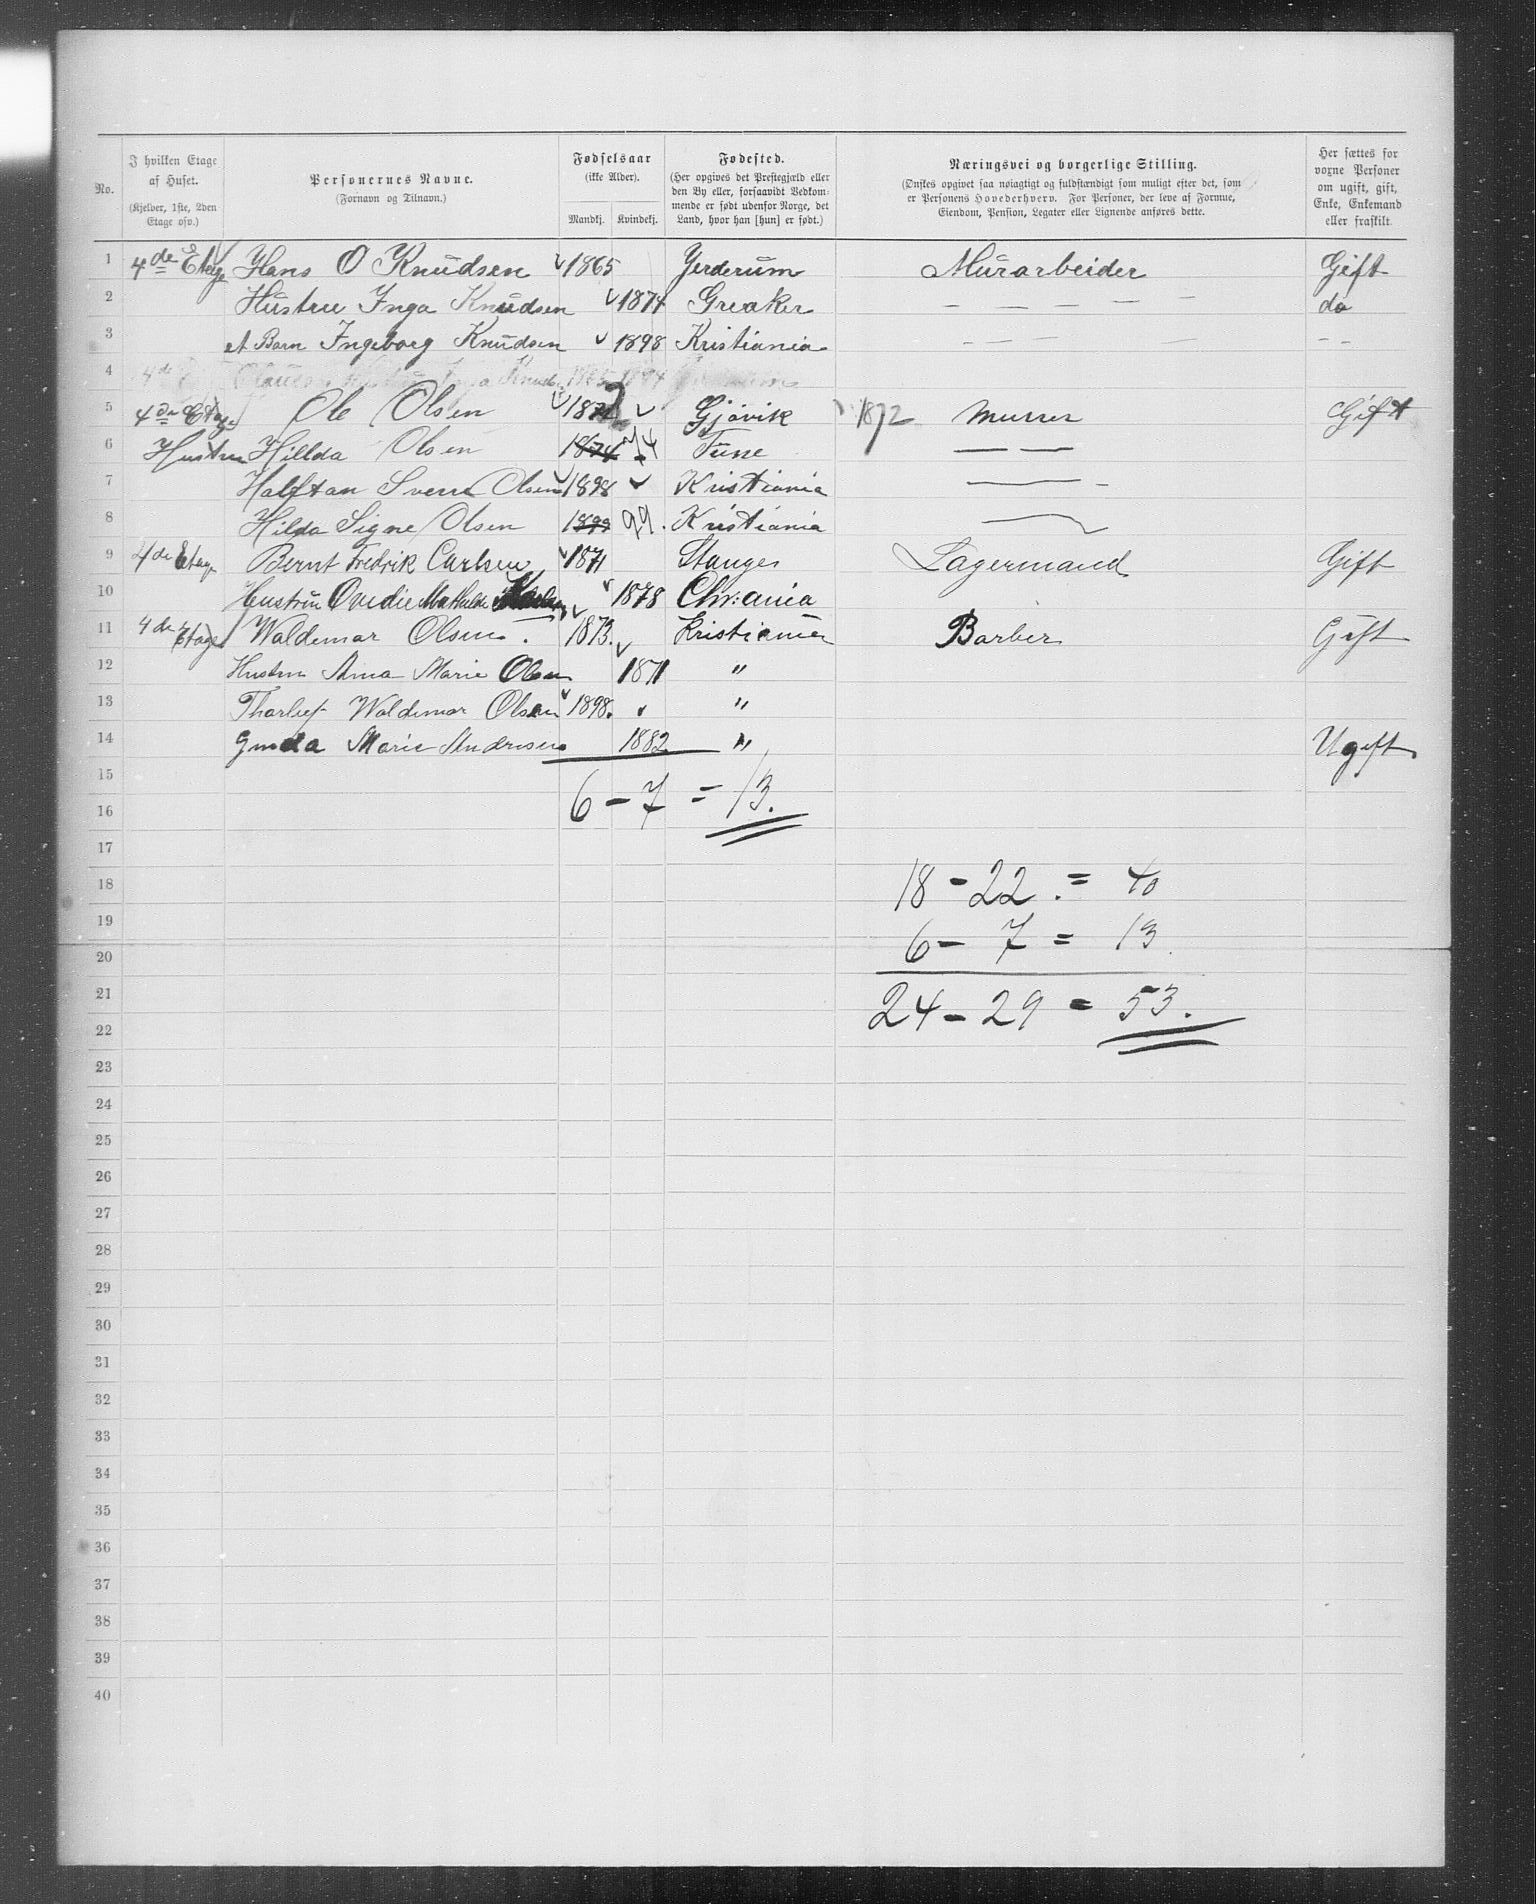 No.
I hvilken Etage af Huset.
(Kjelder, 1ste, 2den Etage osv.)
Personernes Navne.
(Fornavn og Tilnavn.)
Fødselsaar
(ikke Alder).
Mandkj. Kvindekj.
Fødested.
(Her opgives det Prestegjæld eller den By eller, forsaavidt Vedkommende er født udenfor Norge, det Land, hvor han [hun] er født.)
Næringsvei og borgerlige Stilling.
(Ønskes opgivet saa nøiagtigt og fuldstændigt som muligt efter det, som er Personens Hovederhverv. For Personer, der leve af Formue, Eiendom, Pension, Legater eller Lignende anføres dette.
Her sættes for voxne Personer om ugift, gift, Enke, Enkemand eller fraskilt.
1 4de Etage Hans O Knudsen 1865 Gerderum Murarbeider Gift
2 Hustru Inga Knudsen 1874 Greaker — — — — — do
3 et Barn Ingeborg Knudsen 1898 Kristiania — — — — - -
4 4de
5 4de Etage Ole Olsen 1872 Gjøvik 1872 Murrer Gift
6 Hustru Hillda Olsen 1874 74 Tune — —
7 Halftan Sverre Olsen 1898 Kristiania — -
8 Hilda Signe Olsen 1899 99. Kristiania
9 4de Etage Bernt Fredrik Carlsen 1871 Stange Lagermand Gift
10 Hustru Ovedie Mathilde 1878 Chr:ania
11 4de Etage Waldemar Olsen. 1873. Kristiania Barber Gift
12 Hustru Anna Marie Olsen 1871 "
13 Thorleif Waldemar Olsen 1898. "
14 Gunda Marie Andresen 1882 " Ugift
15
16 6 - 7 = 13.
17
18 18 - 22. = 40
19 6 - 7 = 13.
20
21 24 - 29 = 53.
22
23
24
25
26
27
28
29
30
31
32
33
34
35
36
37
38
39
40